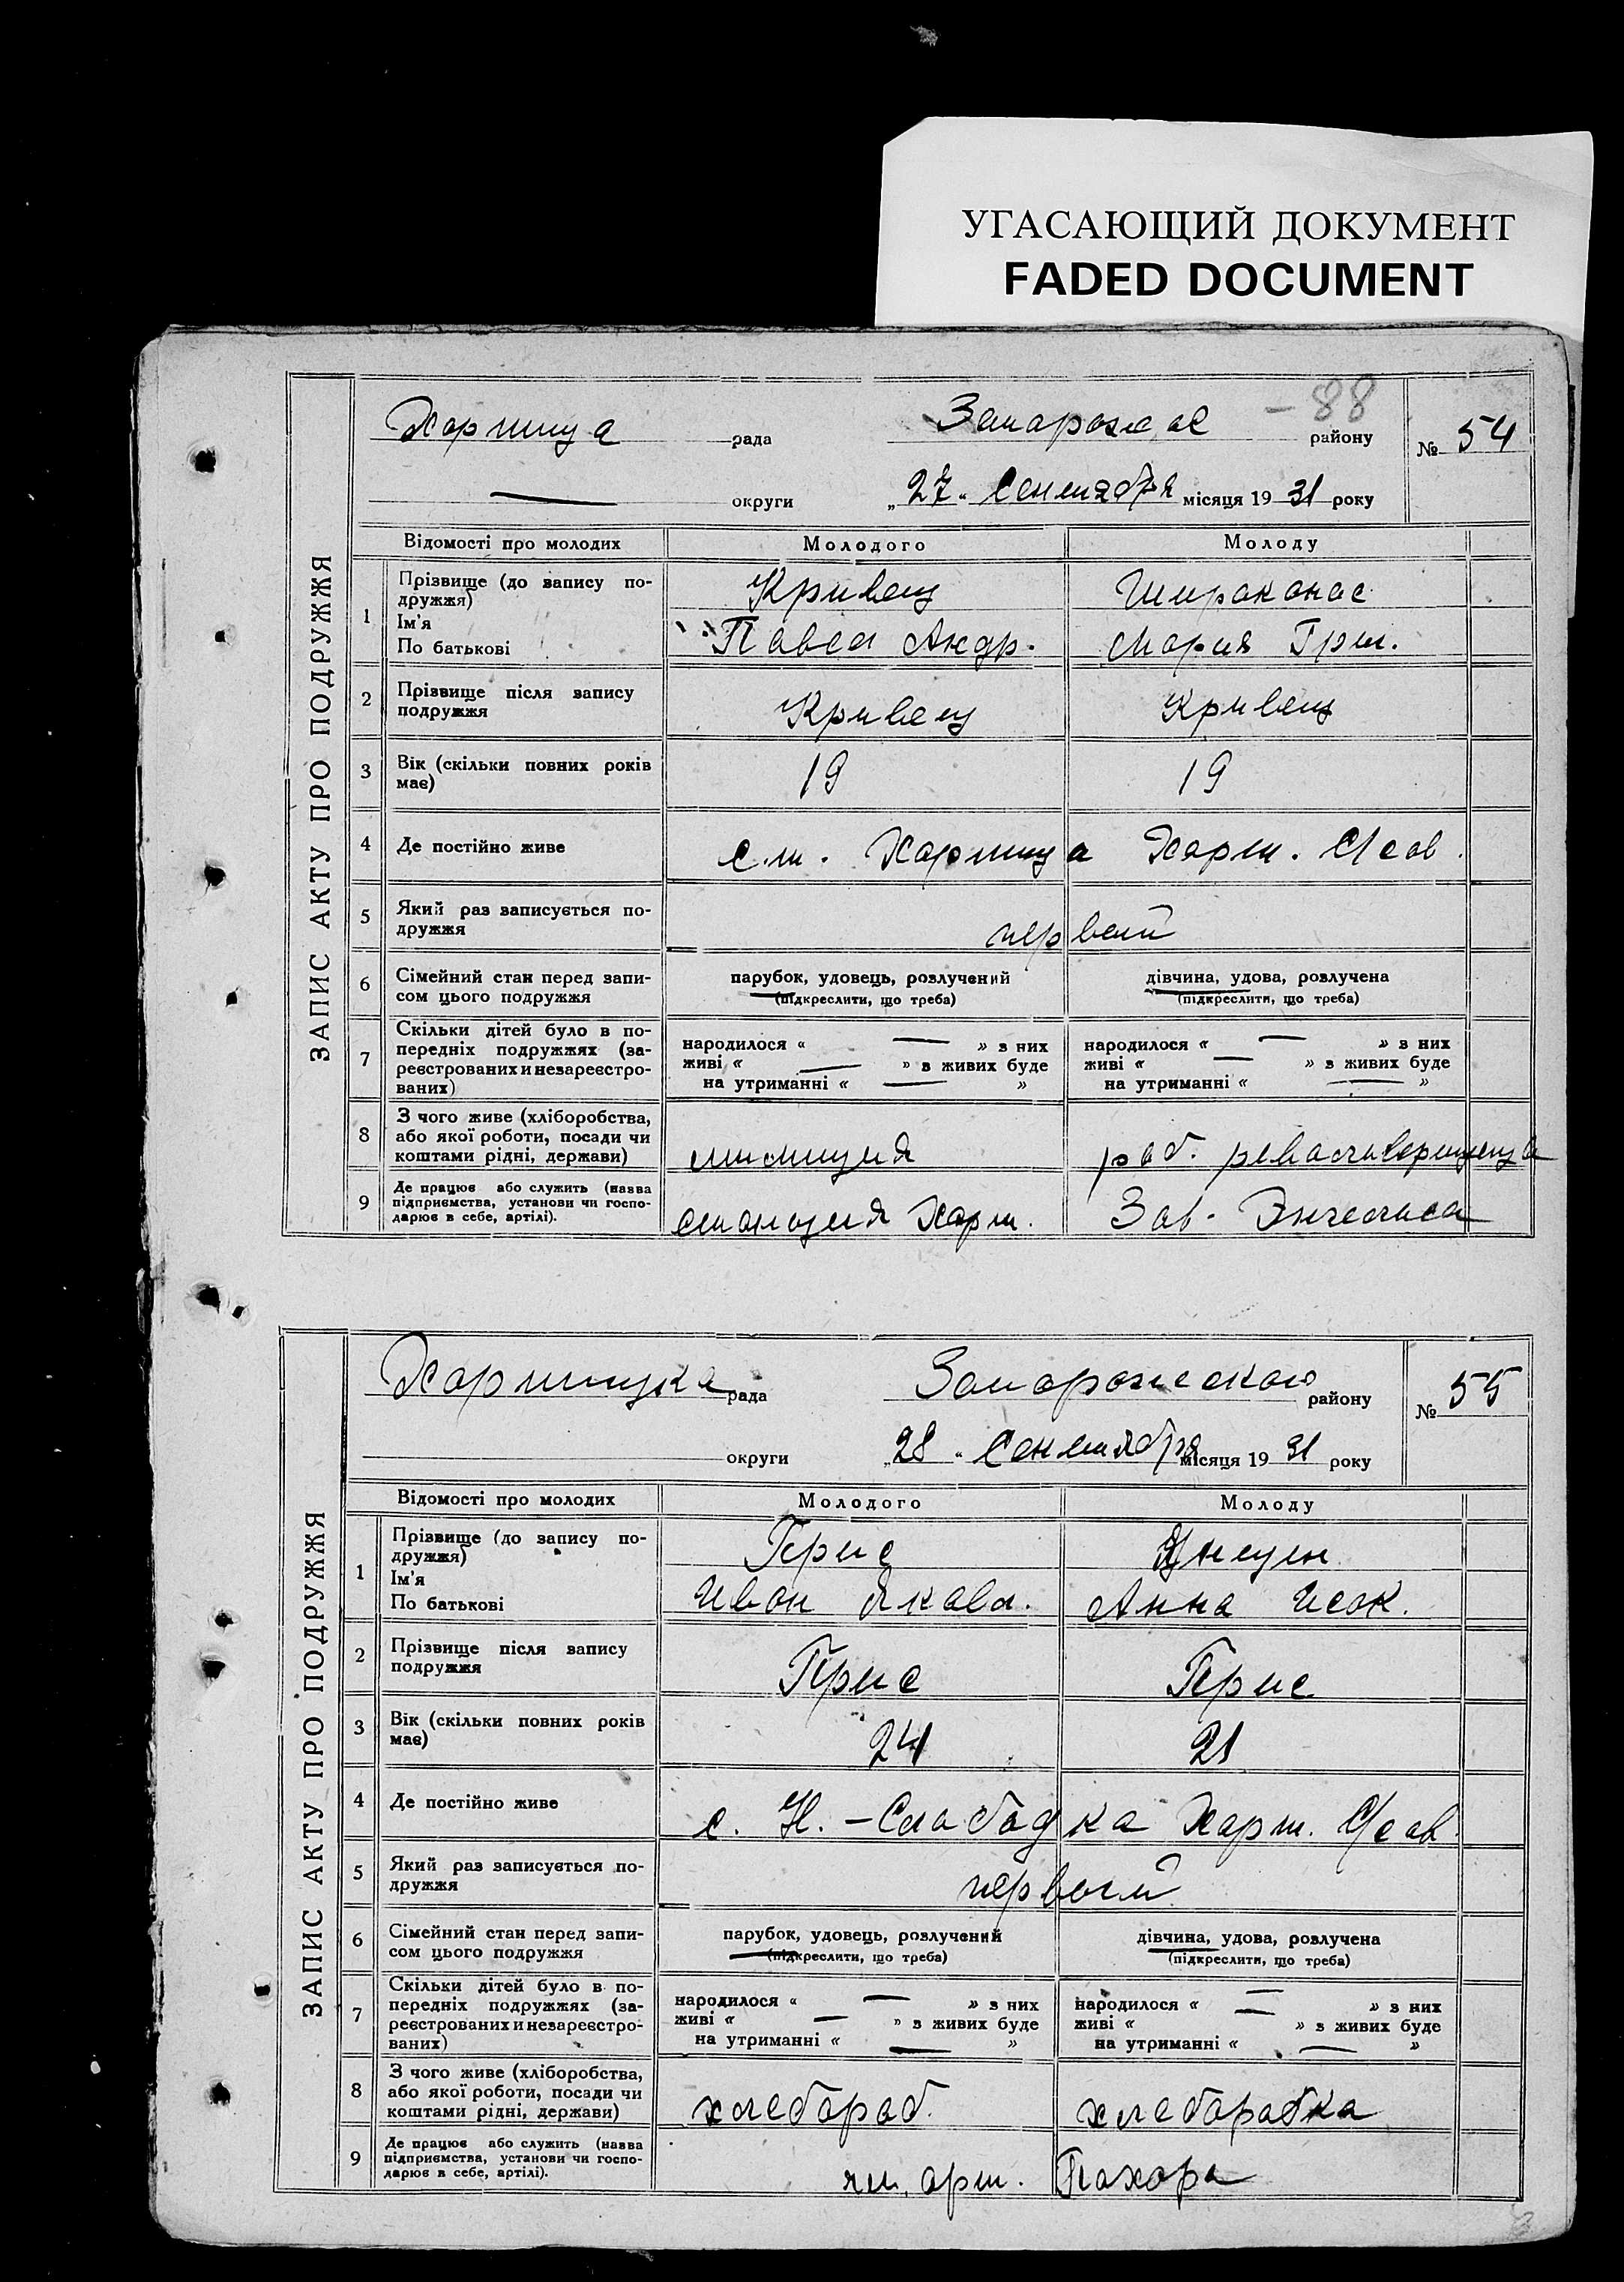 УГАСАЮЩИЙ ДОКУМЕНТ
FADED DOCUMENT
ЗАПИС АКТУ ПРО ПОДРУЖЖЯ
Хортица рада Запорож. району № 54
- 88
округи „27" Сентября місяця 1931 року
Відомості про молодих Молодого Молоду
1 Прізвище (до запису по- Кривец Широконос
дружжя)
Ім'я Павел Андр. Мария Григ.
По батькові
2 Прізвище після запису Кривец Кривец
подружжя
3 Вік (скільки повних років 19 19
має)
4 Де постійно живе ст. Хортица Хорт. С/сов.
5 Який раз записується по- первый
дружжя
6 Сімейний стан перед запи- парубок, удовець, розлучений дівчина, удова, розлучена
сом цього подружжя (підкреслити, що треба) (підкреслити, що треба)
7 Скільки дітей було в по- народилося « — » з них народилося « — » з них
передніх подружжях (за- живі « — » з живих буде живі « — » з живих буде
реєстрованих и незареєстро- на утриманні « — » на утриманні « — »
ваних)
8 З чого живе (хліборобства, милиция раб.
або якої роботи, посади чи
коштами рідні, держави)
9 Де працює або служить (назва станция Хорт. Зав. Энгельса
підприємства, установи чи госпо-
дарює в себе, артілі).
ЗАПИС АКТУ ПРО ПОДРУЖЖЯ
Хортицка рада Запорожского району № 55
округи „28" Сентября місяця 1931 року
Відомості про молодих Молодого Молоду
1 Прізвище (до запису по-
дружжя)
Ім'я Иван Яковл. Анна Исак.
По батькові
2 Прізвище після запису
подружжя
3 Вік (скільки повних років 24 21
має)
4 Де постійно живе с. Н.-Слободка Хорт. С/сов.
5 Який раз записується по- первый
дружжя
6 Сімейний стан перед запи- парубок, удовець, розлучений дівчина, удова, розлучена
сом цього подружжя (підкреслити, що треба) (підкреслити, що треба)
7 Скільки дітей було в по- народилося « — » з них народилося « — » з них
передніх подружжях (за- живі « — » з живих буде живі « — » з живих буде
реєстрованих и незареєстро- на утриманні « — » на утриманні « — »
ваних)
8 З чого живе (хліборобства, хлебороб. хлеборобка
або якої роботи, посади чи
коштами рідні, держави)
9 Де працює або служить (назва чл. арт. Пахарь
підприємства, установи чи госпо-
дарює в себе, артілі).